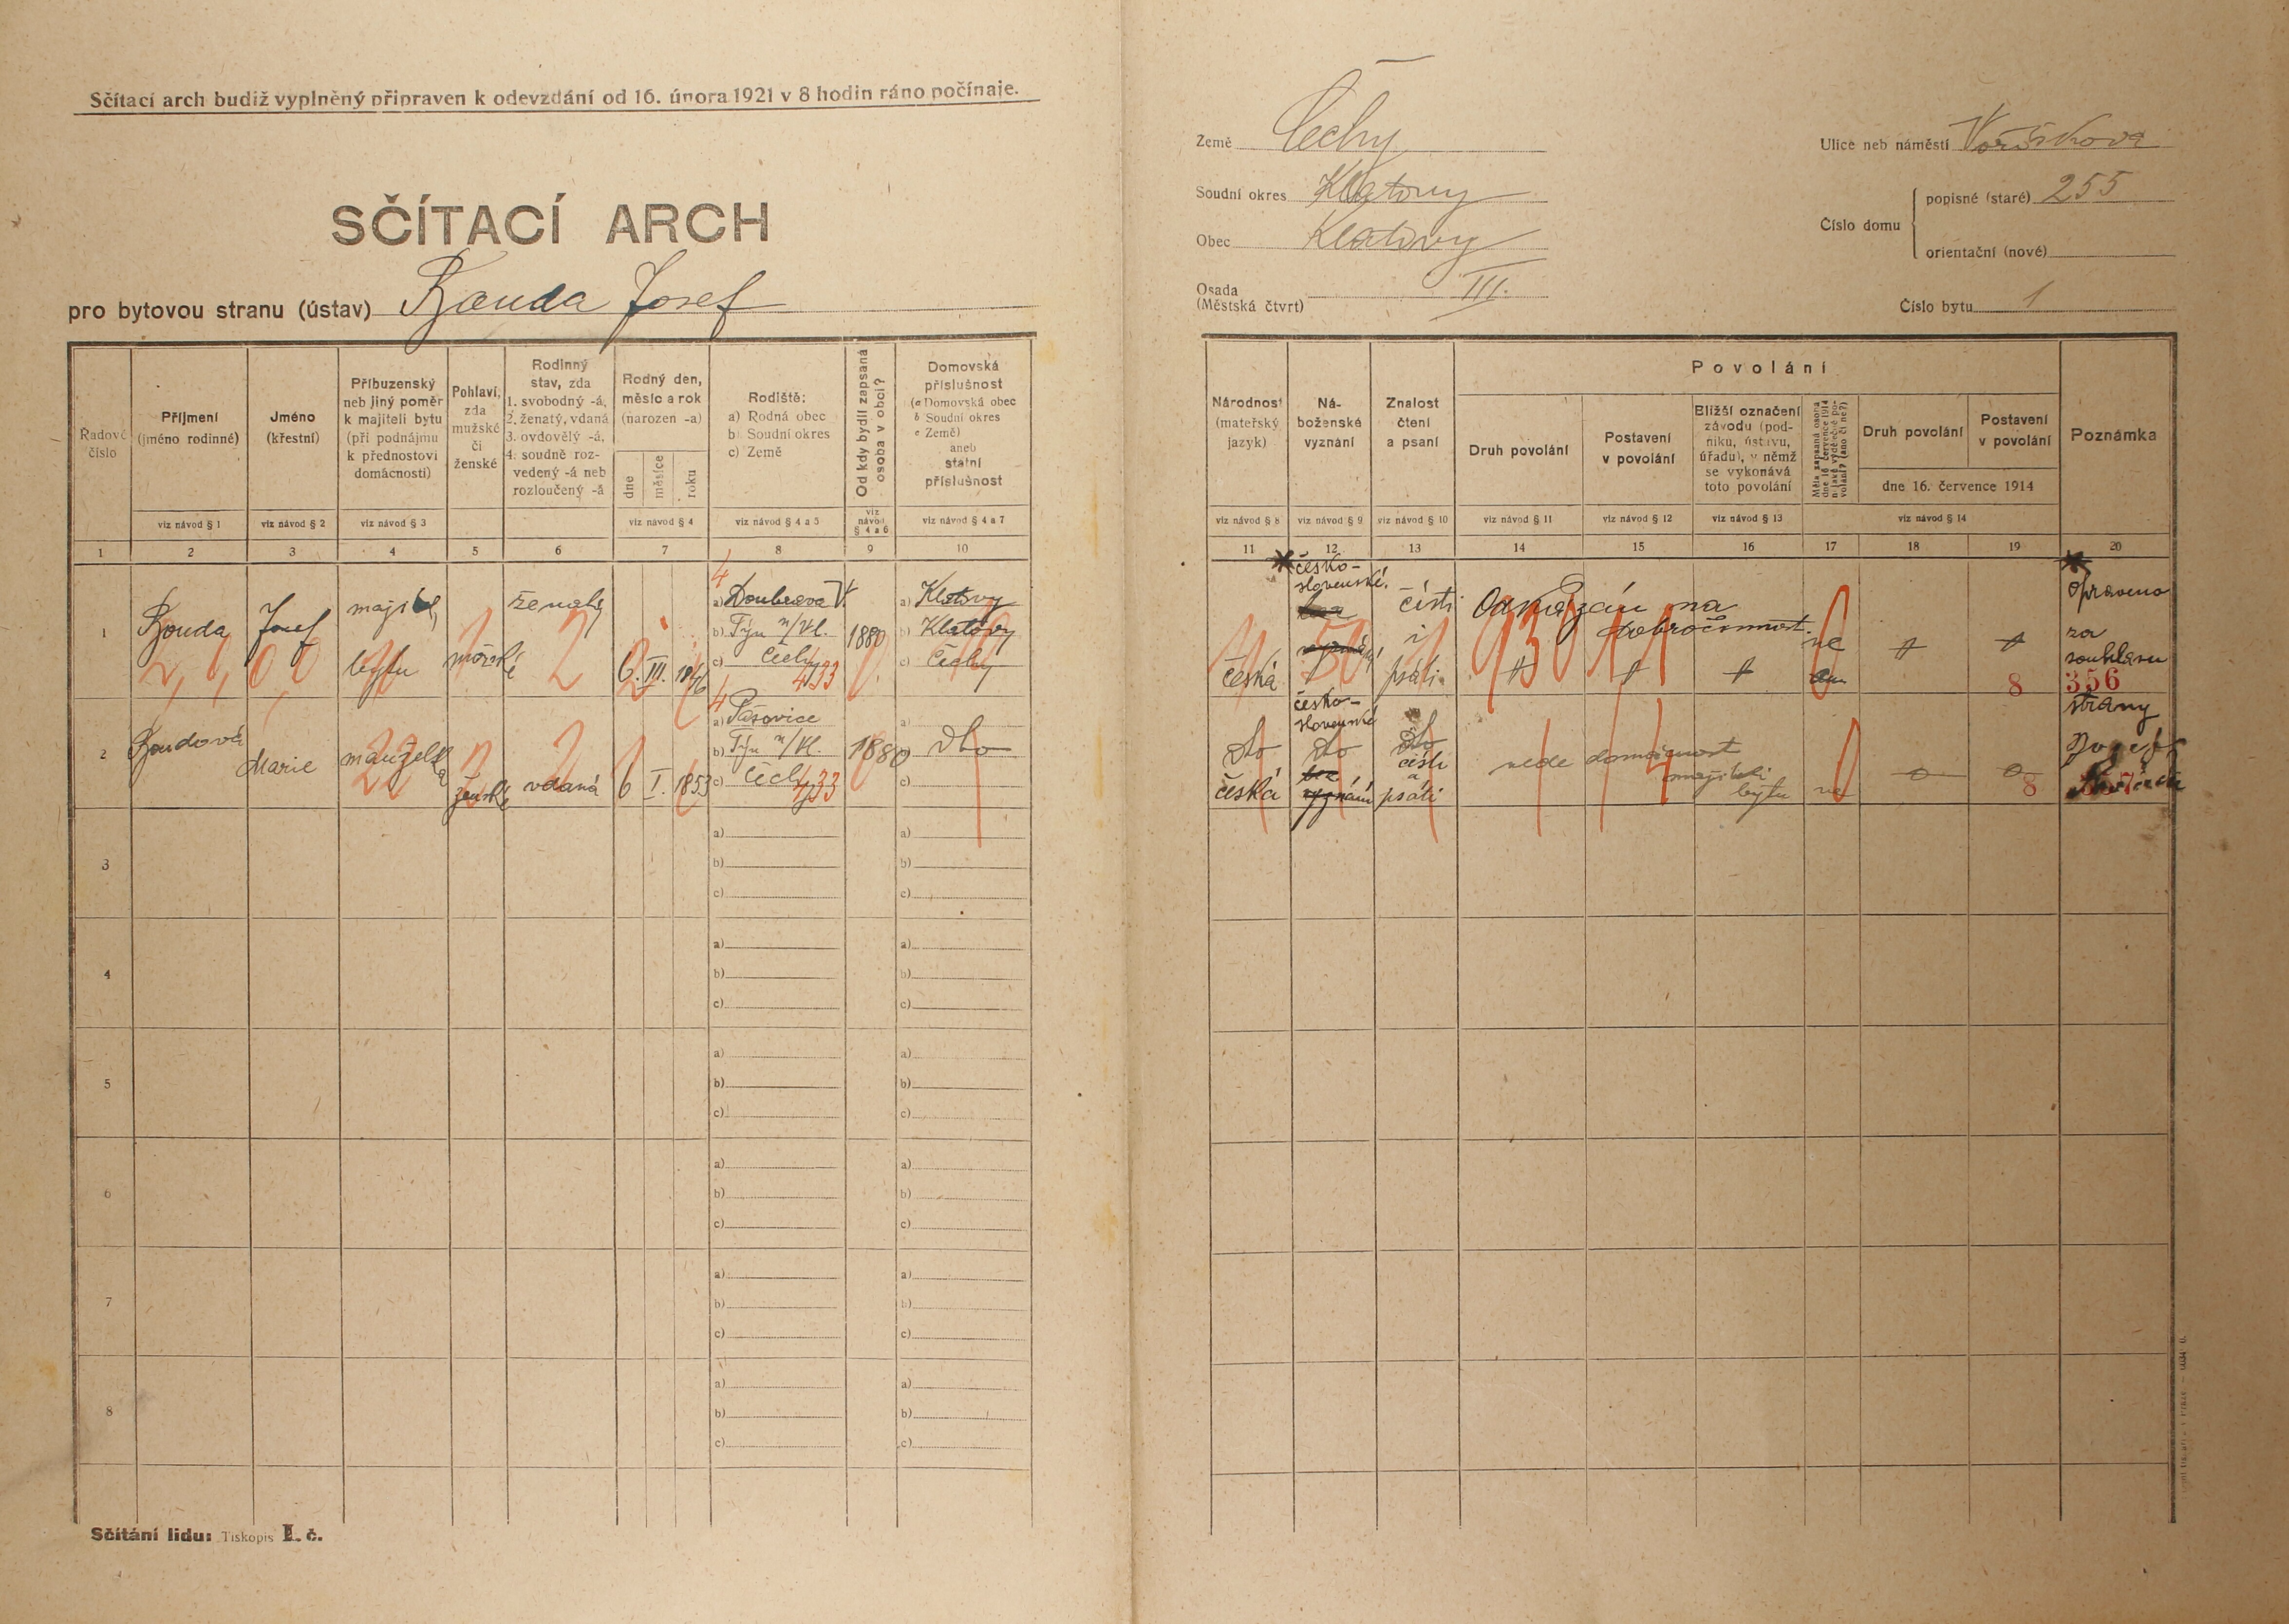 Sčítací arch budiž vyplněný připraven k odevzdání od 16. února 1921 v 8 hodin ráno počínaje.
SČÍTACÍ ARCH
pro bytovou stranu (ústav) Bouda Josef
Země Čechy
Soudní okres Klatovy
Obec Klatovy
Osada
(Městská čtvrt) III.
Ulice neb náměstí
Číslo domu
popisné (staré) 255
orientační (nové)
Číslo bytu 1
Řadové číslo
Příjmení
(jméno rodinné)
viz návod § 1
Jméno
(křestní)
viz návod § 2
Příbuzenský
neb jiný poměr
k majiteli bytu
(při podnájmu
k přednostovi
domácnosti)
viz návod § 3
Pohlaví,
zda
mužské
či
ženské
Rodinný
stav, zda
1. svobodný -á,
2. ženatý, vdaná
3. ovdovělý -á,
4. soudně roz-
vedený -á neb
rozloučený -á
Rodný den,
měsíc a rok
(narozen -a)
dne
měsíce
roku
viz návod § 4
Rodiště:
a) Rodná obec
b) Soudní okres
c) Země
viz návod § 4 a 5
Od kdy bydlí zapsaná
osoba v obci?
viz
návod
§ 4 a 6
Domovská
příslušnost
(a Domovská obec
b Soudní okres
c Země)
aneb
státní
příslušnost
viz návod § 4 a 7
1 2 3 4 5 6 7 8 9 10
Národnost
(mateřský
jazyk)
viz návod § 8
Ná-
boženské
vyznání
viz návod § 9
Znalost
čtení
a psaní
viz návod § 10
Povolání
Druh povolání
viz návod § 11
Postavení
v povolání
viz návod § 12
Bližší označení
závodu (pod-
niku, ústavu,
úřadu), v němž
se vykonává
toto povolání
viz návod § 13
Měla zapsaná osoba
dne 16. července 1914
Druh povolání
Postavení
v povolání
dne 16. července 1914
viz návod § 14
Poznámka
11 12 13 14 15 16 17 18 19 20
1
Bouda
Josef
majitel
bytu
mužské
ženatý
6. III. 1846
a) Doubrava
b) Týn n/Vl.
c) Čechy
4
433
1880
a) Klatovy
b) Klatovy
c) Čechy
česká
česko-
slovenské
čísti
i
psáti
Odkázán na
dobročinnost
ne
8
Opraveno
za
souhlasu
356
strany
2
Boudová
Marie
manželka
ženské
vdaná
6 I. 1853
a) Pašovice
b) Týn n/Vl.
c) Čechy
4
433
1880
a)
b) dto
c)
dto
česká
česko-
slovenské
dto
bez
vyznání
dto
čísti
a
psáti
vede domácnost
majiteli
bytu
ne
8
3
a)
b)
c)
a)
b)
c)
4
a)
b)
c)
a)
b)
c)
5
a)
b)
c)
a)
b)
c)
6
a)
b)
c)
a)
b)
c)
7
a)
b)
c)
a)
b)
c)
8
a)
b)
c)
a)
b)
c)
Sčítání lidu: Tiskopis I. č.